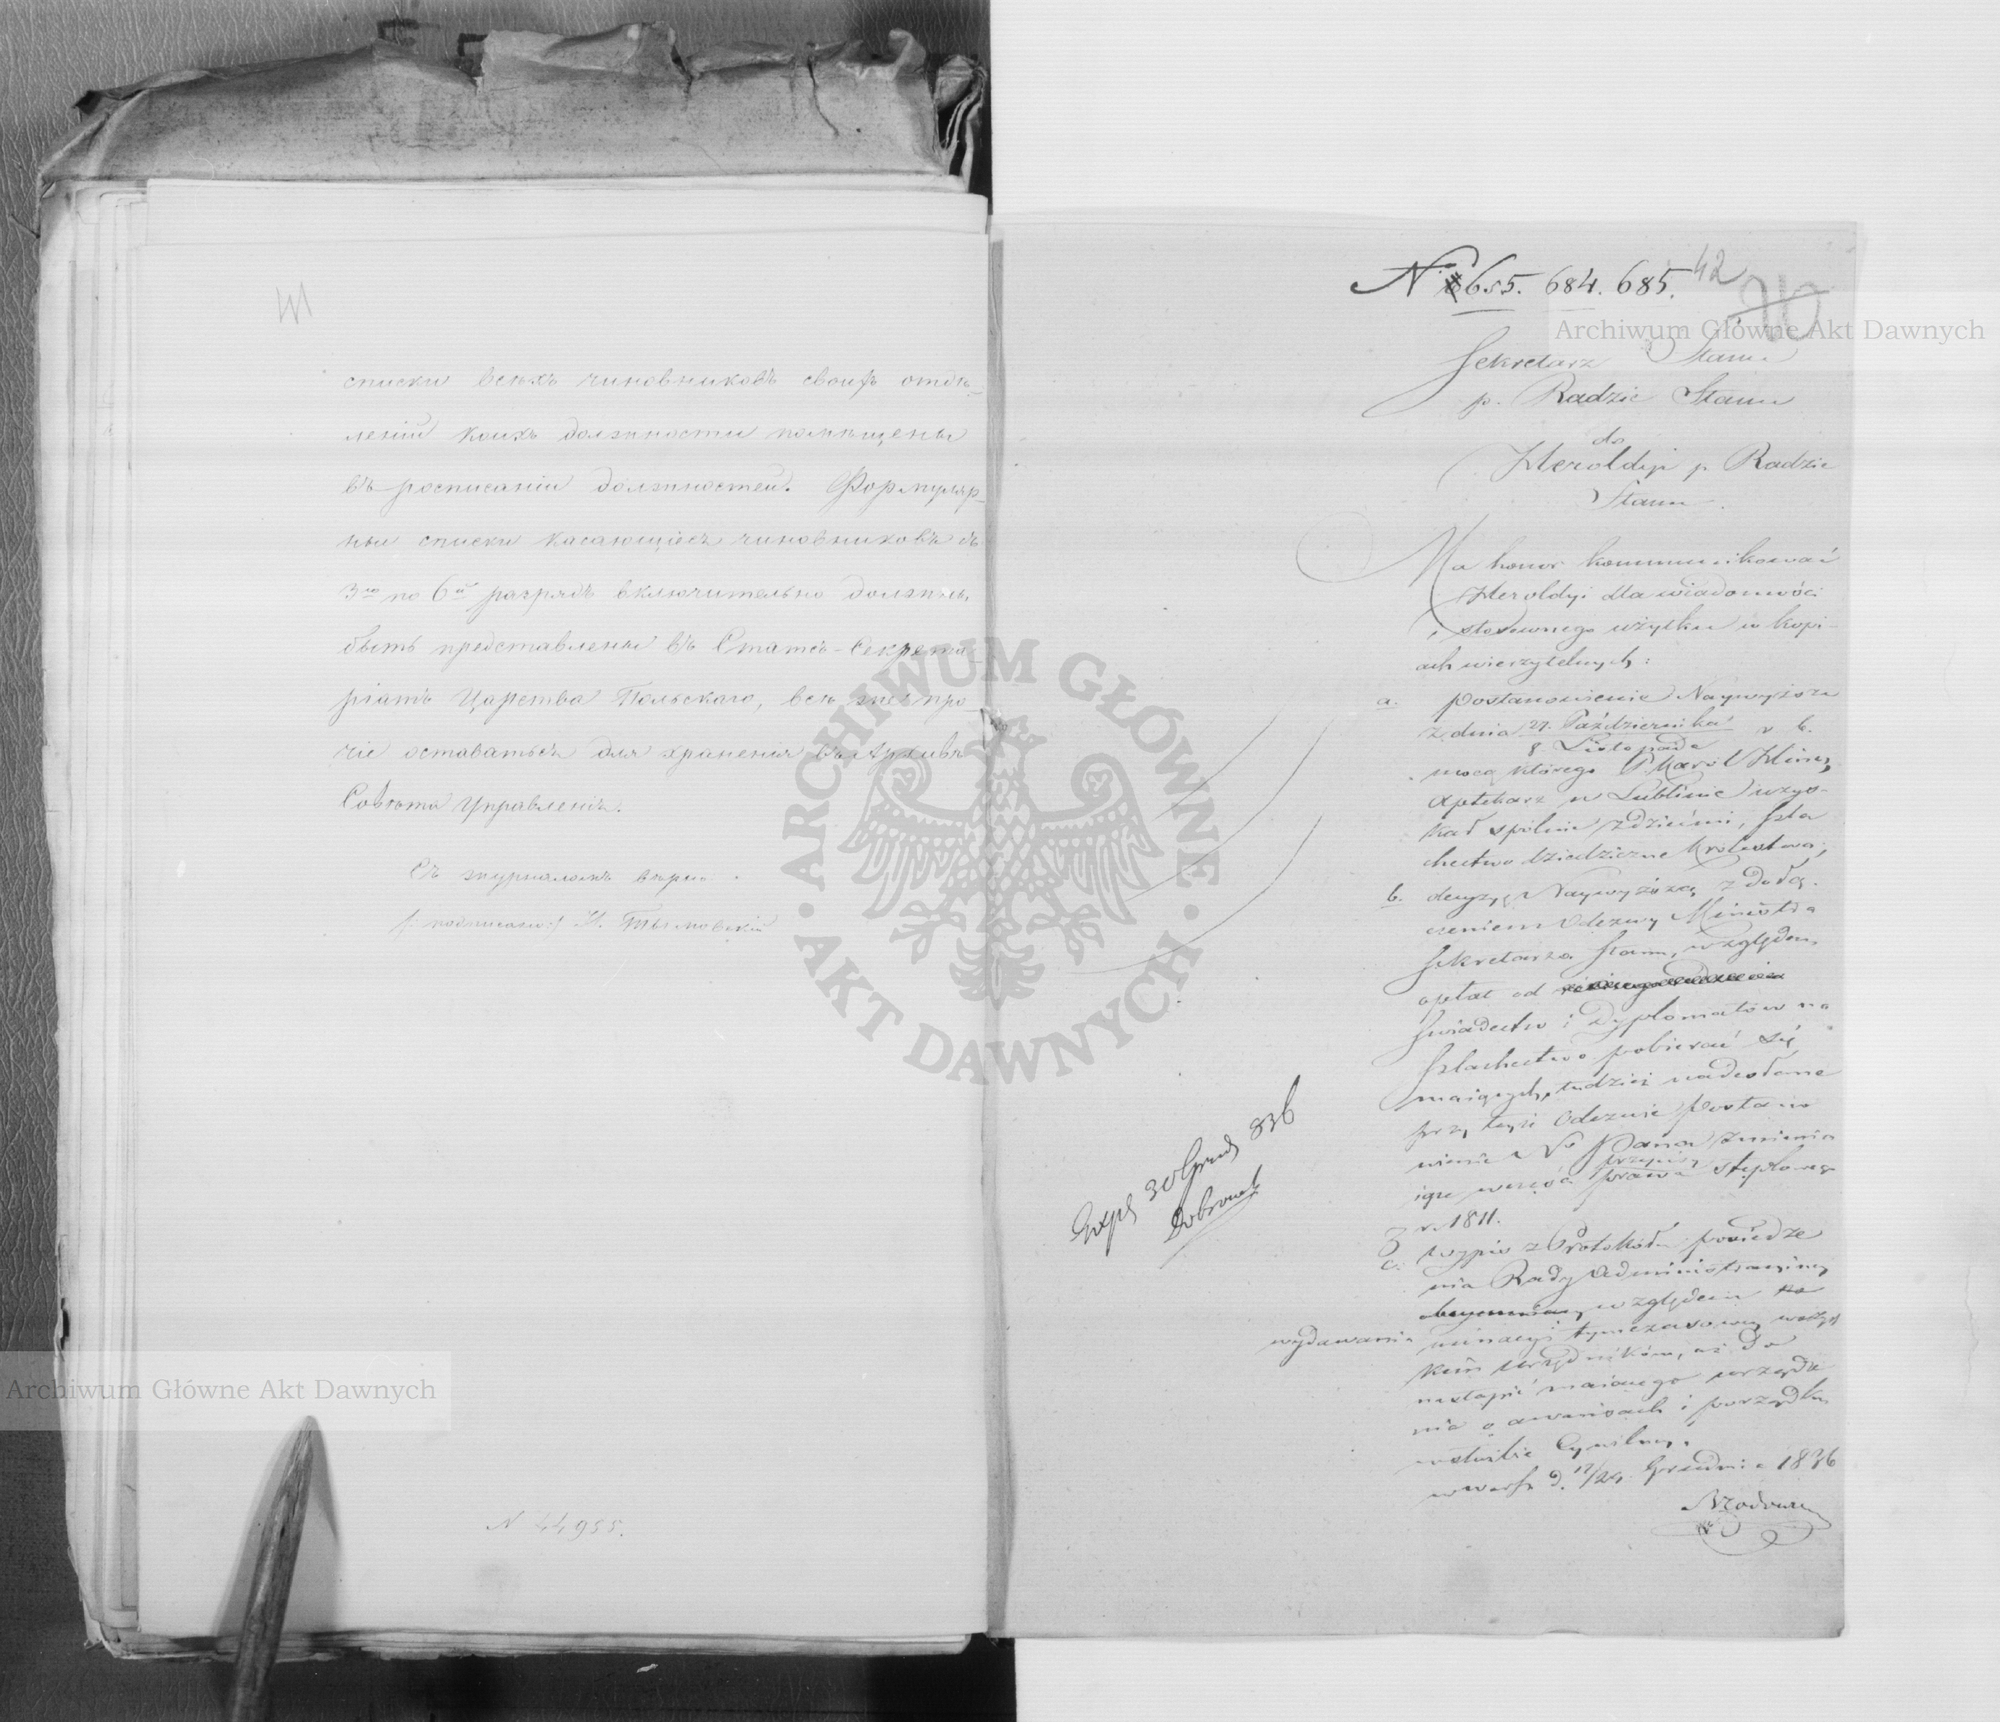 41
списки всѣхъ чиновниковъ своихъ отдѣ-
леній коихъ должности помѣщены
въ росписаніи должностей. Формуляр-
ные списки касающіеся чиновниковъ съ
3го по 6й разрядъ включительно должны
быть представлены въ Статсъ-Секрета-
ріатъ Царства Польскаго, всѣ же про-
чіе оставаться для храненія въ Архивѣ
Совѣта Управленія.
Съ журналомъ вѣрно:
/: подписалъ:/ И. Тымовскій
N 44955.
N 655. 684. 685.
42
Sekretarz Stanu
p. Radzie Stanu
do
Heroldyi p. Radzie
Stanu.
Ma honor kommunikować
Heroldyi dla wiadomości
i stosownego użytku w kopi-
ach wierzytelnych:
a. Postanowienie Naywyższe
z dnia 27. Października r. b.
8. Listopada
mocą którego P. Karol Hincz
Aptekarz w Lublinie uzys-
kał spólnie z dziećmi, szla
chectwo dziedziczne Królestwa;
b. decyzyę Naywyższą z dołą-
czeniem Odezwy Ministra
Sekretarza Stanu, względem
opłat od
świadectw i Dyplomatów na
szlachectwo pobierać się
maiących, tudzież nadesłane
przy teyże Odezwie Postano
wienie Pana zmienia
iące w części prawa stęplowego
przepisy
r. 1811.
c. wypis z Protokółu posiedze
nia Rady Administracyiney
względem
wydawania
nominacyi tymczasowey wszyst
kim urzędników, aż do
nastąpić maiącego urządze
nia o awansach i porządku
w służbie Cywilney.
w Warsz. d. 17/29 Grudnia 1836
Exp. 30 Grud. 836
Archiwum Główne Akt Dawnych
Archiwum Główne Akt Dawnych
ARCHIWUM GŁÓWNE
AKT DAWNYCH